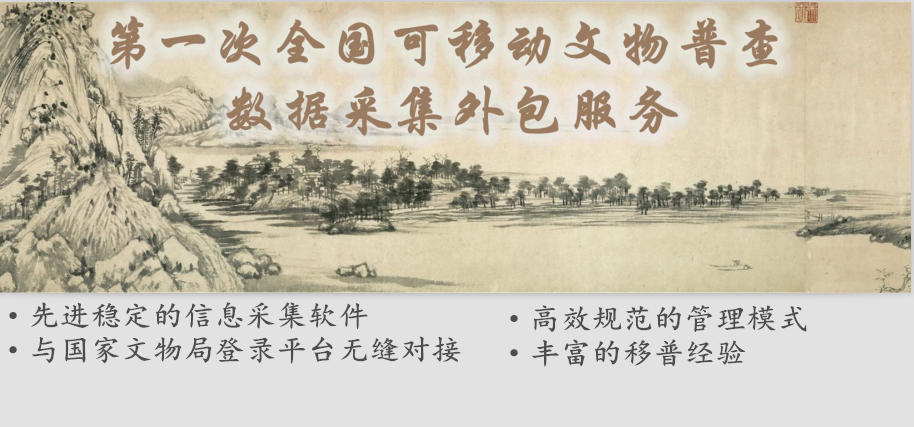 第一次全国可移动文物普查
数据采集外包服务
• 先进稳定的信息采集软件
• 与国家文物局登录平台无缝对接
• 高效规范的管理模式
• 丰富的移普经验